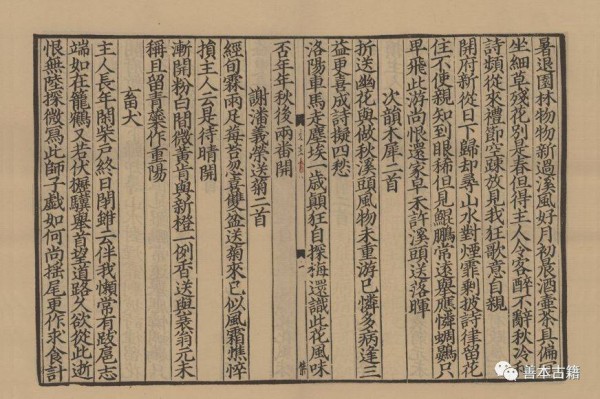 暑退園林物物新過溪風好月初宸酒壺茶具偏宜
坐細草殘花別是春但得主人令客醉不辭秋冷和
詩頻從來禮節空疎放見我狂歌意自親
開府新從日下歸却尋山水對煙霏剩披詩律留花
住不使親知到眼稀但見鯤鵬常遠與應憐蜩鷃只
卑飛此游尚恨還家早未許溪頭送落暉
次韻木犀二首
折送幽花與傲秋溪頭風物未重游已憐多病逢三
益更喜成詩擬四愁
洛陽車馬走塵埃一歲顛狂自探梅還識此花風味
否年年秋後兩番開
謝潘義榮送菊二首
經旬霖雨足莓苔忽喜雙盆送菊來已似風霜憔悴
損主人云是待晴開
漸開粉白間微黃肯與新橙一例香送與衰翁元未
稱且留青蘂作重陽
畜犬
主人長年閉柴戸終日閑蜼去伴我懶常有跋扈志
端如在籠鶴又若伏櫪驥舉首望道路久欲從此逝
恨無陸探微寫此師子戲如何尚揺尾更作求食計
善本古籍